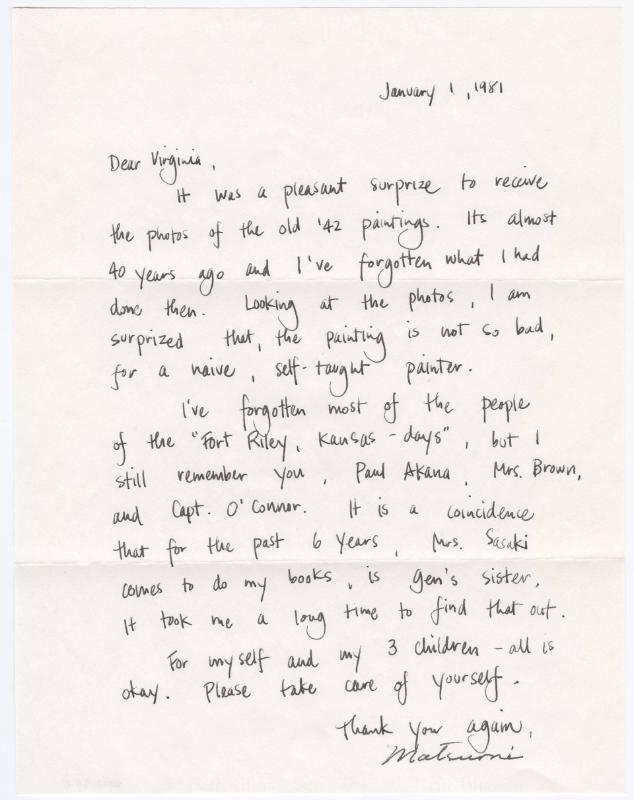 January 1, 1981
Dear Virginia,
It was a pleasant surprize to receive
the photos of the old '42 paintings. Its almost
40 years ago and I've forgotten what I had
done then. Looking at the photos, I am
surprized that, the painting is not so bad,
for a naive, self-taught painter.
I've forgotten most of the people
of the "Fort Riley, Kansas - days", but I
still remember you, Paul Akana, Mrs. Brown,
and Capt. O'Connor. It is a coincidence
that for the past 6 years, Mrs. Sasaki
comes to do my books, is Gen's sister.
It took me a long time to find that out.
For myself and my 3 children - all is
okay. Please take care of yourself.
Thank you again,
Matsumi